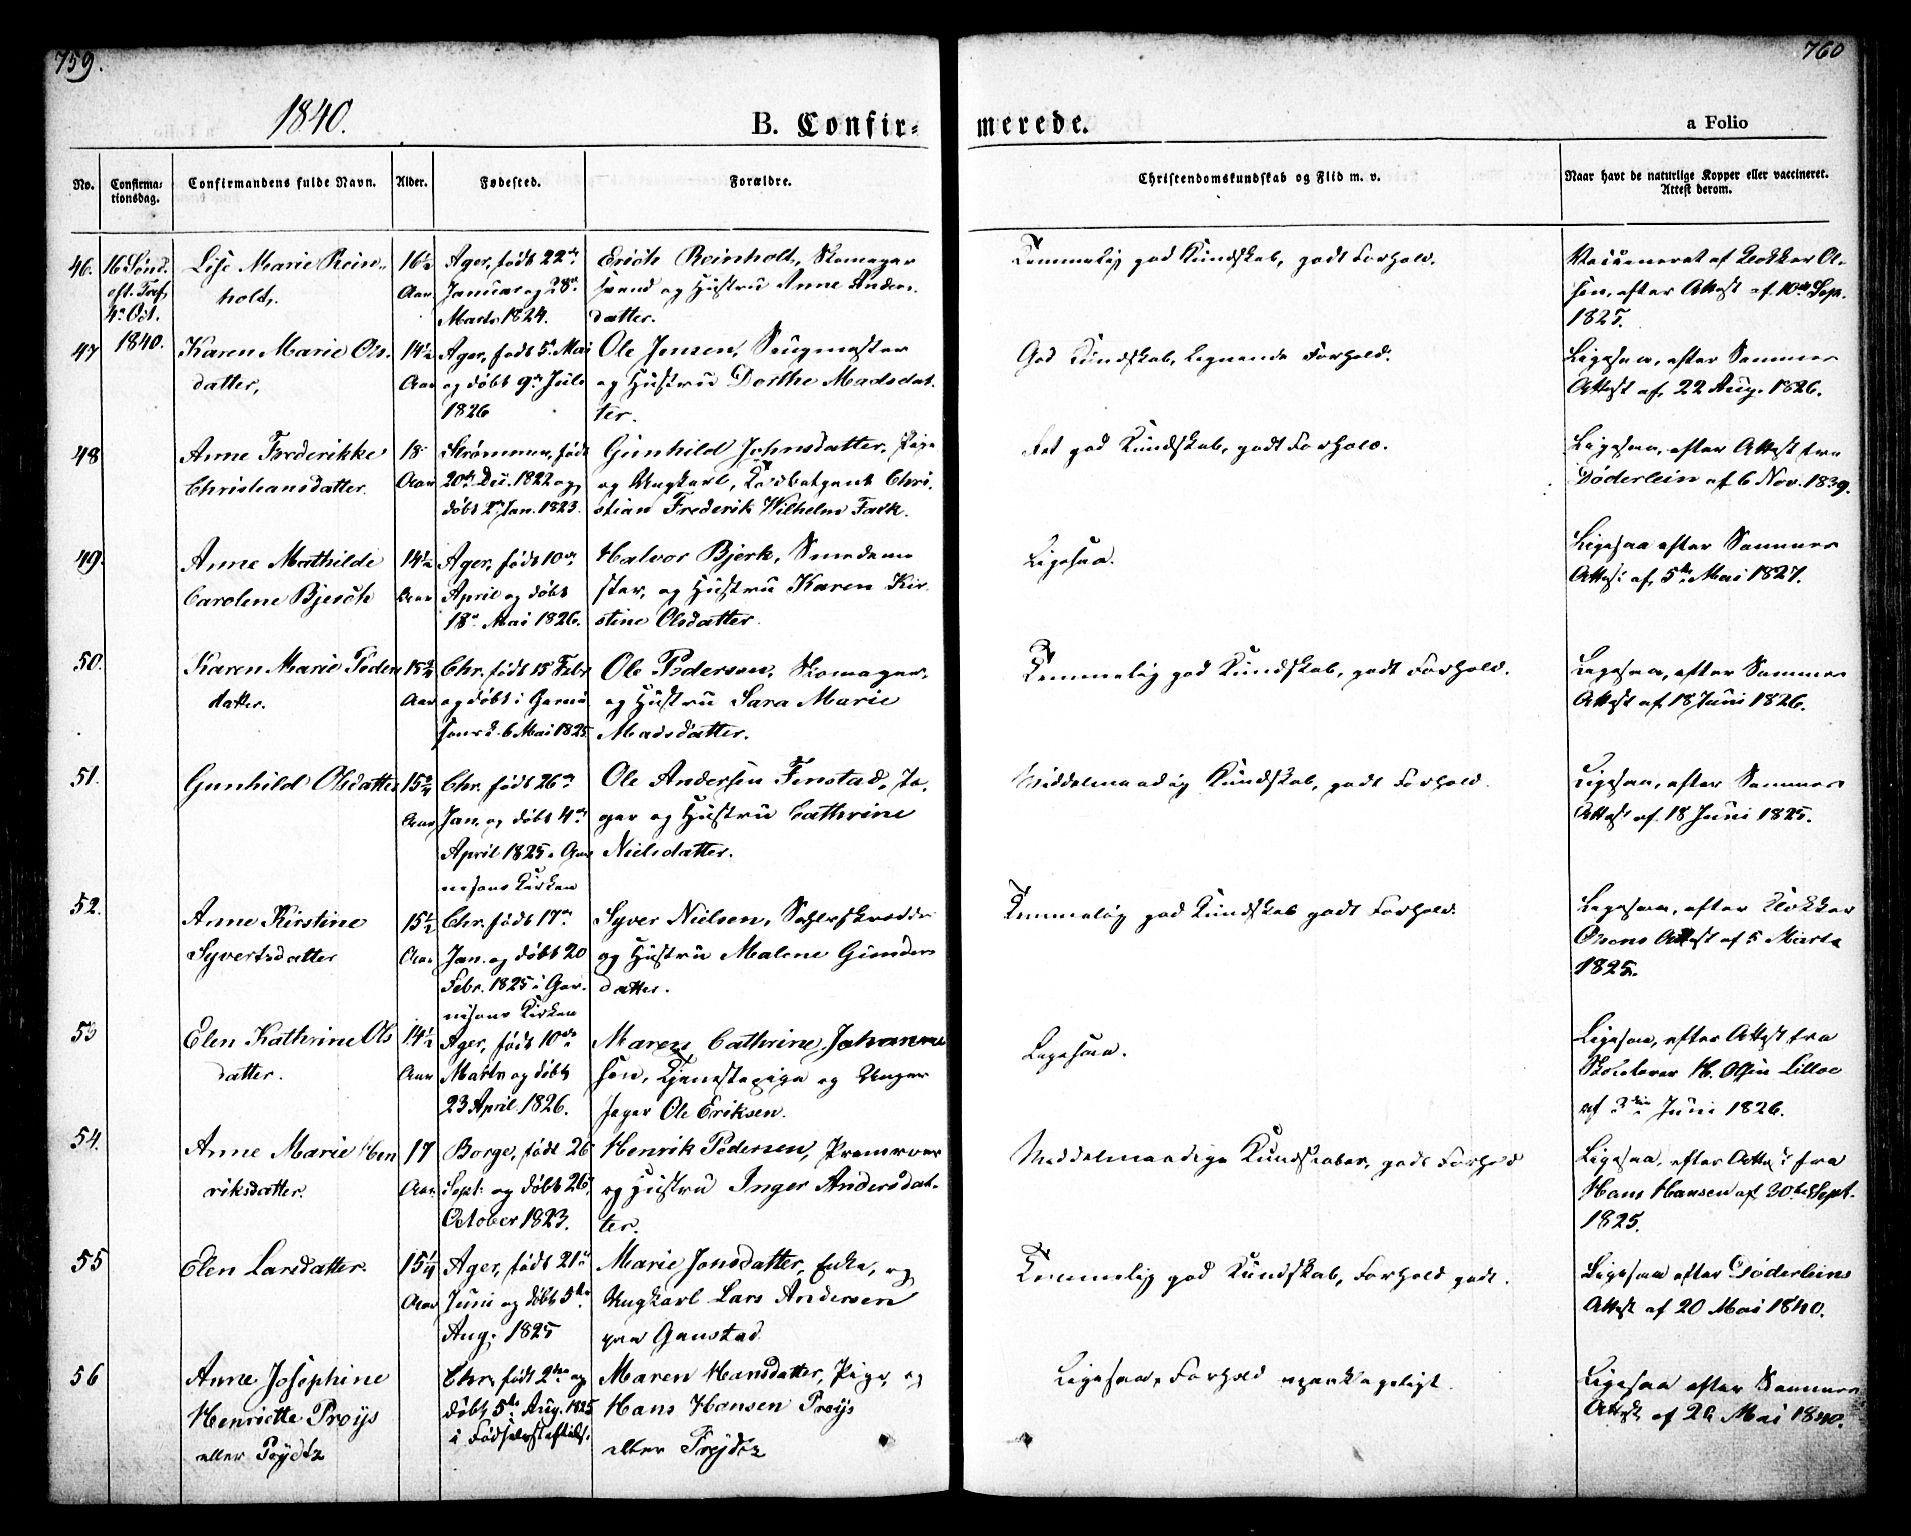 759.
760
1840.
B. Confir-
merede.
a Folio
No.
Confirma-
tionsdag.
Confirmandens fulde Navn.
Alder.
Fødested.
Forældre.
Christendomskundskab og Flid m. v.
Naar havt de naturlige Kopper eller vaccineret.
Attest derom.
46.
16 Sønd.
eft. Tref.
4de Oct.
1840.
Lise Marie Rein-
hold,
16½
Aar
Ager, født 22de
Januar og 28de
Marts 1824.
Erich Reinholt, Skomager
svend og Hustru Anne Anders
datter.
Temmelig god Kundskab, godt Forhold.
Vaccineret af Klokker Ol-
sen, efter Attest af 10de Sep.
1825.
47
Karen Marie Ols-
datter,
14½
Aar
Ager, født 5te Mai
og døbt 9de Juli
1826
Ole Jensen, Saugmester
og Hustru Dorthe Madsdat-
ter.
God Kundskab, Forhold.
Ligesaa, efter Sammes
Attest af 22 Aug. 1826.
48
Anne Frederikke
Christiansdatter.
18
Aar
Strømmen, født
20de Dec. 1822 og
døbt 2den Jan. 1823.
Gunhild Johnsdatter, Pige
og Ungkarl, Chri-
stian Frederik Wilhelm Falk.
Ret god Kundskab, godt Forhold.
Ligesaa, efter Attest fra
Døderlein af 6 Nov. 1839.
49.
Anne Mathilde
Carolene Bjerch
14½
Aar
Ager, født 10de
April og døbt
18de Mai 1826.
Halvor Bjerk, Smedeme
ster, og Hustru Karen Kir-
stine Olsdatter.
Ligesaa.
Ligesaa efter Sammes
Attest af 5te Mai 1827.
50.
Karen Marie Peders
datter.
15¾
Aar
Chr. født 15 Febr
og døbt i Garni
sons d. 6 Mai 1825
Ole Pedersen, Skomager,
og Hustru Sara Marie
Madsdatter.
Temmelig god Kundskab, godt Forhold.
Ligesaa, efter Sammes
Attest af 18 Juni 1826.
51.
Gunhild Olsdatter
15¾
Aar
Chr. født 26de
Jan. og døbt 4de
April 1825 i Gar
nisons Kirken
Ole Andersen Finstad, Jæ-
ger og Hustru Cathrine
Nielsdatter.
Middelmaadig Kundskab, godt Forhold.
Ligesaa, efter Sammes
Attest af 18 Juni 1825.
52.
Anne Kirstine
Syvertsdatter
15½
Aar
Chr. født 17de
Jan. og døbt 20
Febr. 1825 i Gar-
nisons Kirken
Syver Nielsen,
og Hustru Malene Gunders
datter.
Temmelig god Kundskab godt Forhold.
Ligesaa, efter Klokker
Olsens Attest af 5 Marts
1825.
53
Elen Kathrine Ols
datter.
14½
Aar
Ager, født 10de
Marts og døbt
23 April 1826.
Maren Cathrine Johanne
sen, Tjenestepige og Unger
Jeger Ole Eriksen.
Ligesaa.
Ligesaa, efter Attest fra
Skolelærer H. Olsen Lilloe
af 3die Juni 1826.
54.
Anne Marie Hen
riksdatter.
17
Aar
Borge, født 26
Sept. og døbt 26
October 1823.
Henrik Pedersen,
og Hustru Inger Andersdat-
ter.
Middelmaadige Kundskaber, godt Forhold
Ligesaa, efter Attest fra
Hans Hansen af 30te Sept.
1825.
55
Elen Larsdatter.
15¼
Aar
Ager, født 21de
Juni og døbt 5te
Aug. 1825
Marie Jonsdatter, Enke, og
Ungkarl Lars Andersen
paa Gaustad
Temmelig god Kundskab, Forhold godt.
Ligesaa efter Døderleins
Attest af 20 Mai 1840.
56
Anne Josephine
Henriette Prøys
eller Prøydtz
Chr. født 2den og
døbt 5te Aug. 1825
i Fødselsstiftels.
Maren Hansdatter, Pige, og
Hans Hansen Prøys
eller Prøydtz
Ligesaa, Forhold upaaklageligt.
Ligesaa efter Sammes
Attest af Mai 1840.